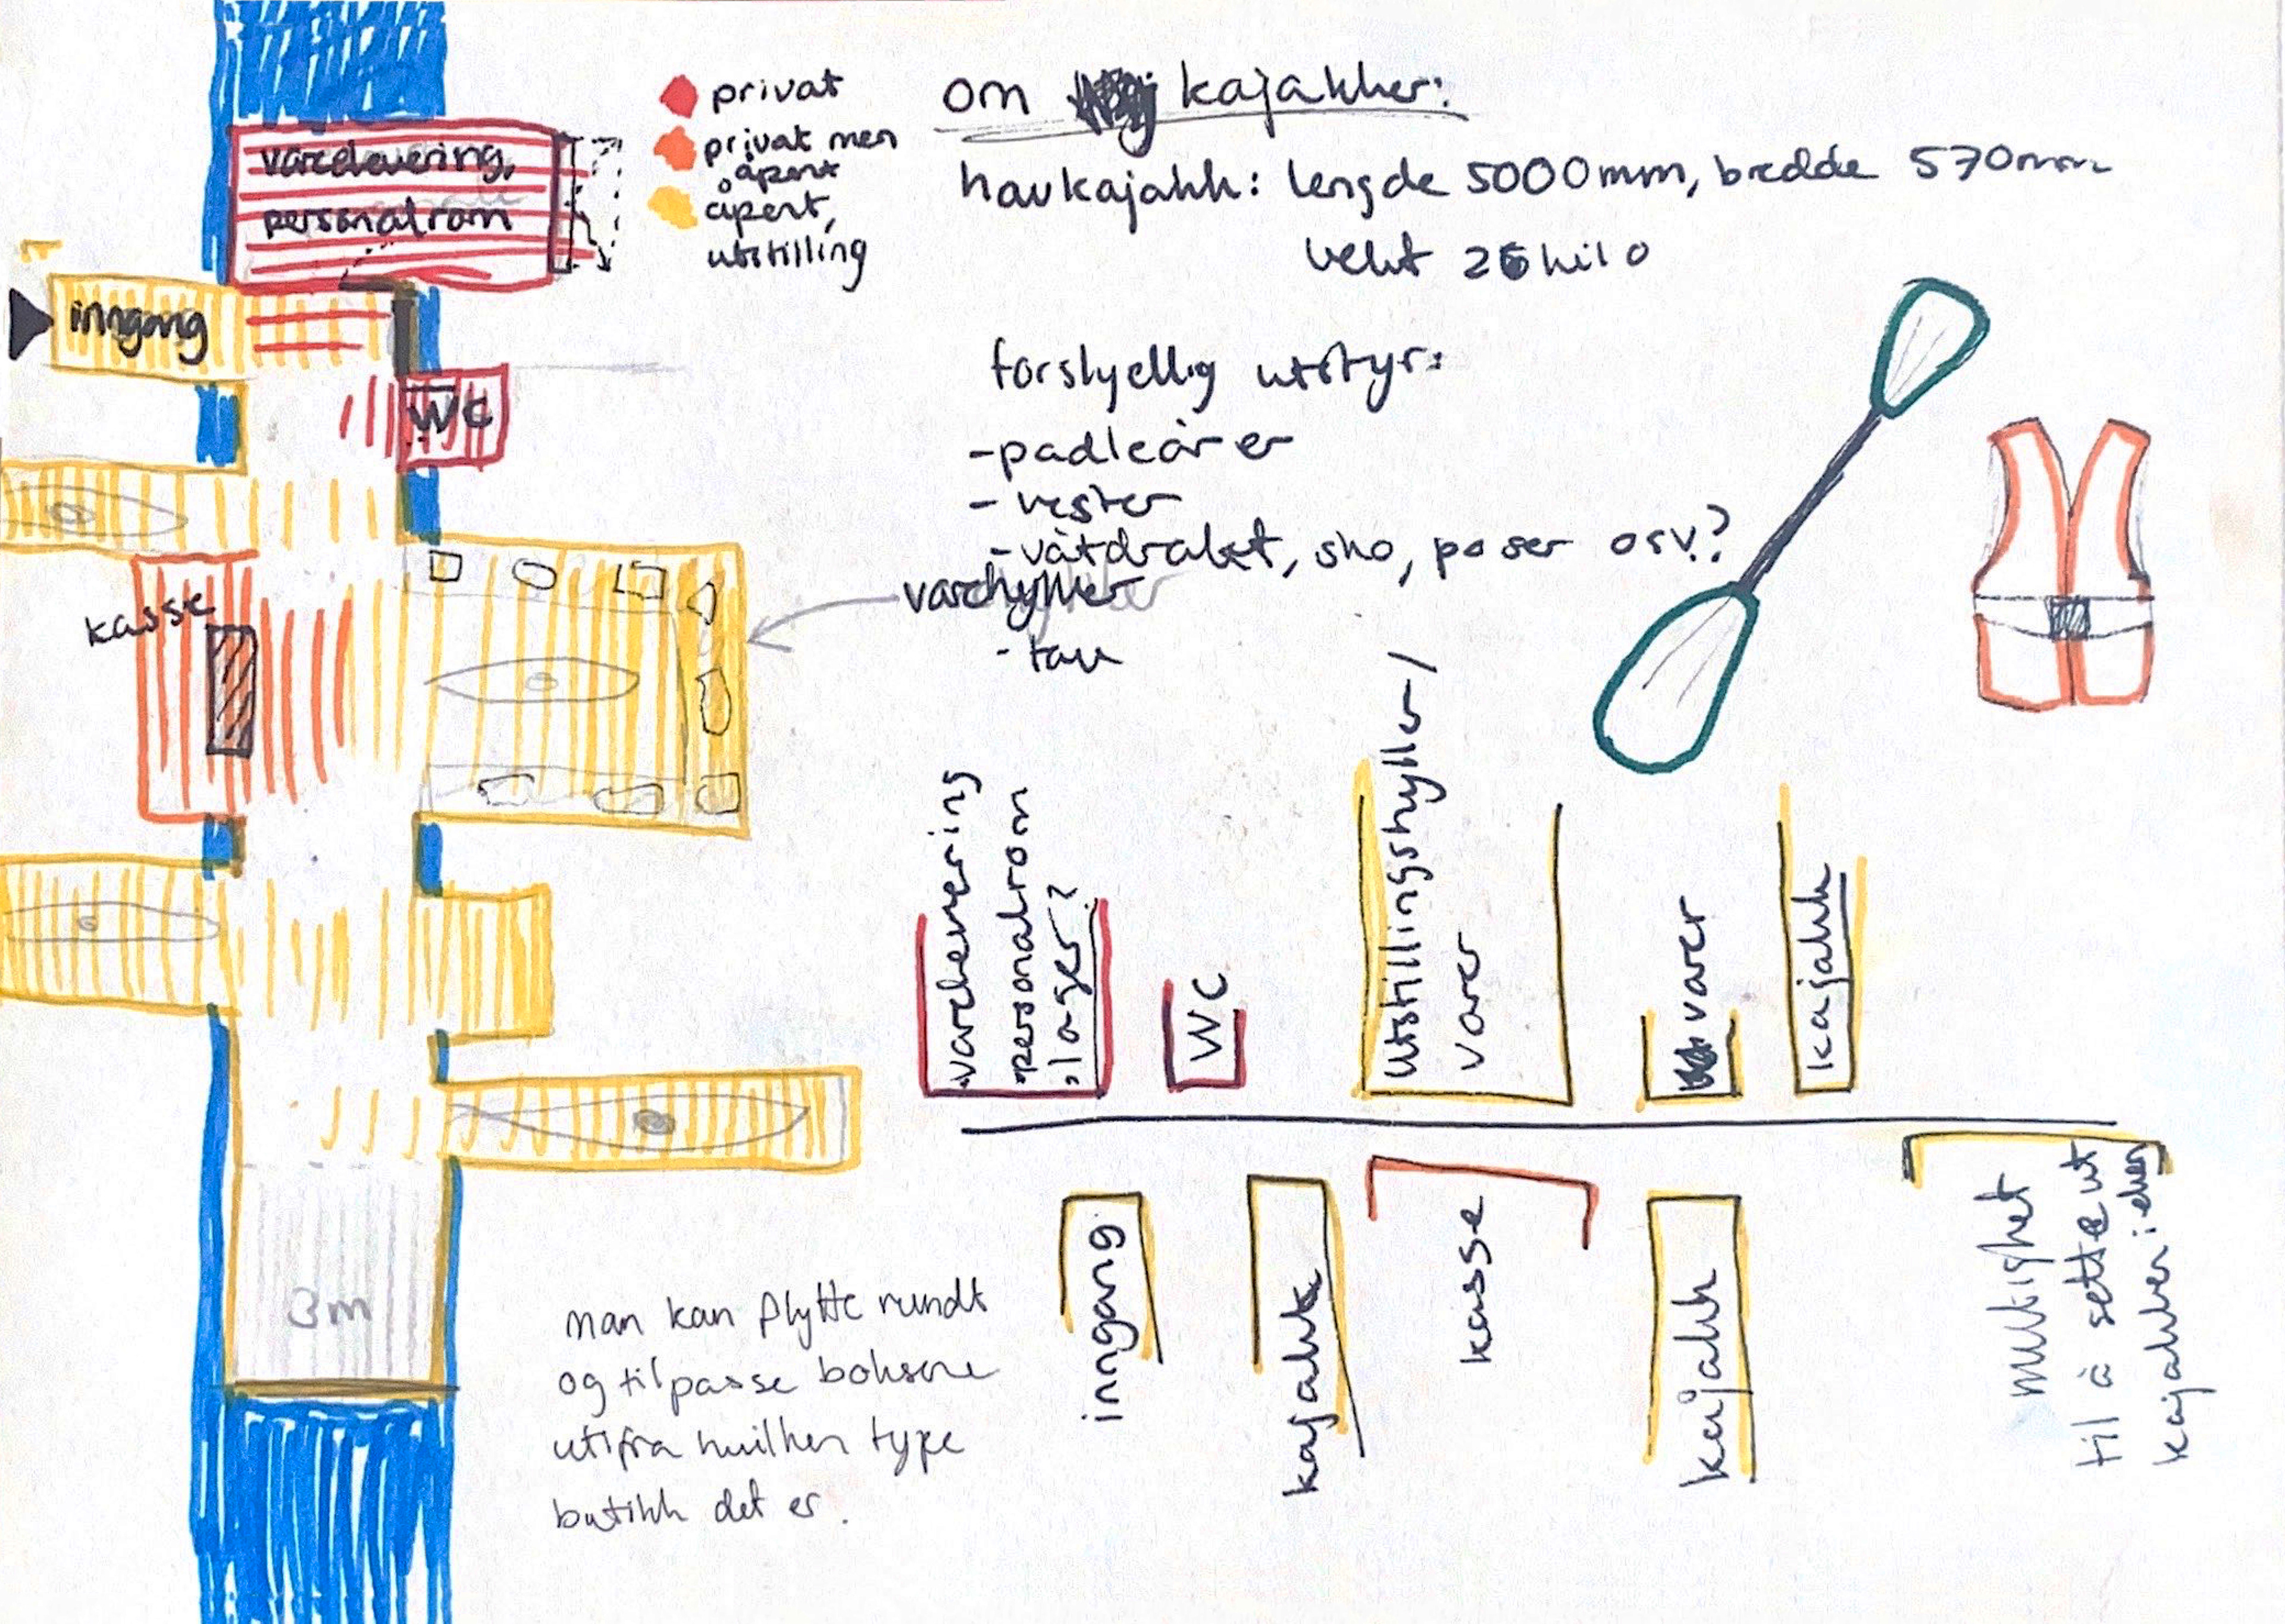 privat
privat men
åpent
åpent,
utstilling
om kajakker:
havkajakk: lengde 5000mm, bredde 570mm
vekt 26 kilo
varelevering,
personalrom
inngang
WC
kasse
3m
forskjellig utstyr:
-padleårer
- vester
-våtdrakt, sko, poser osv?
varehyller
- tau
varelevering
personalrom
lager?
WC
utstillingshyller/
varer
varer
kajakk
inngang
kajakk
kasse
kajakk
mulighet
til å sette ut
kajakker i elven
man kan flytte rundt
og tilpasse boksene
utifra hvilken type
butikk det er.